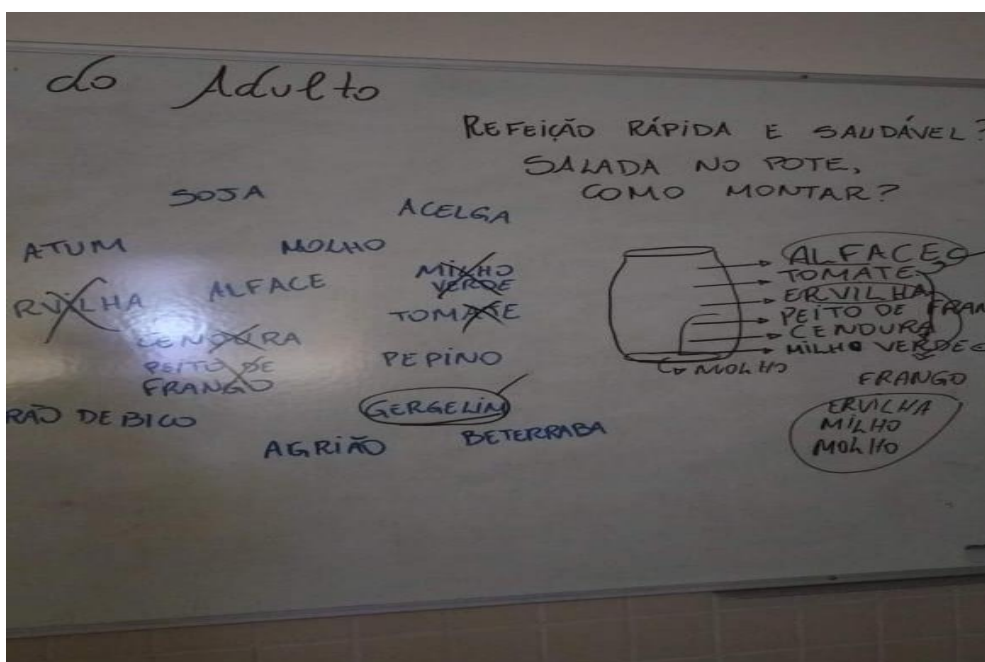 do Adulto
REFEIÇÃO RÁPIDA E SAUDÁVEL?
SALADA NO POTE,
COMO MONTAR?
SOJA
ACELGA
ATUM
MOLHO
RVILHA
ALFACE
MILHO
VERDE
CENOURA
TOMATE
PEITO DE
FRANGO
PEPINO
RÃO DE BICO
GERGELIM
AGRIÃO
BETERRABA
ALFACE
TOMATE
ERVILHA
PEITO DE FRAN
CENOURA
MILHO VERDE
MOLHO
FRANGO
ERVILHA
MILHO
MOLHO